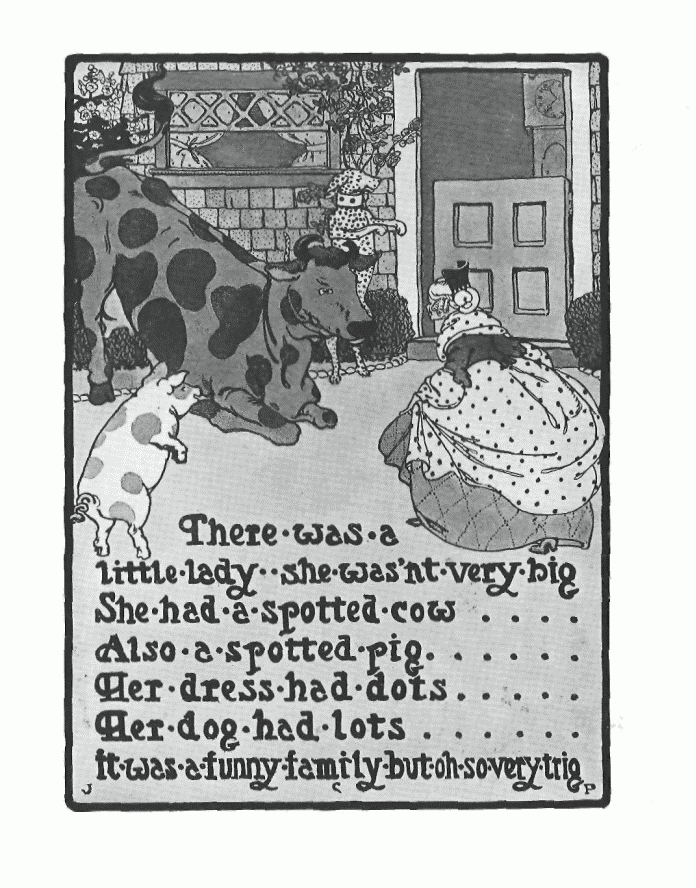 There·was·a
little·lady··she·was'nt·very·big
She·had·a·spotted·cow ....
Also·a·spotted·pig......
Her·dress·had·dots.....
Her·dog·had·lots .......
it·was·a·funny·family·but·oh·so·very·trig
J C P